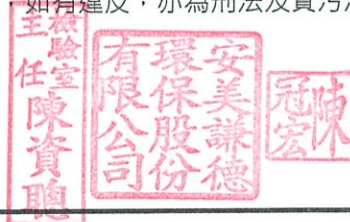 如有違反，亦為刑法及貪污
檢驗室
主任
陳資聰
安美謙德
環保股份
有限公司
陳
冠宏